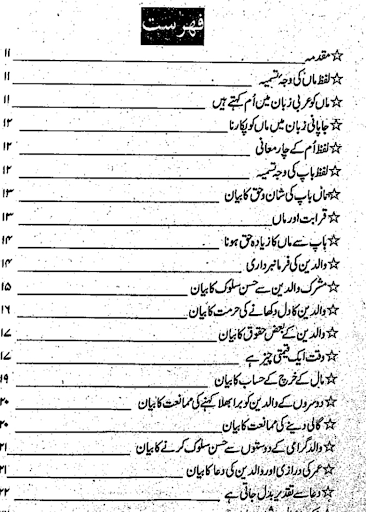 فہرست
☆ مقدمہ ۱۱
☆ لفظ ماں کی وجہ تسمیہ ۱۱
☆ ماں کو عربی زبان میں اُم کہتے ہیں ۱۱
☆ جاپانی زبان میں ماں کو پکارنا ۱۲
☆ لفظ اُم کے چار معانی ۱۲
☆ لفظ باپ کی وجہ تسمیہ ۱۲
☆ ماں باپ کی شان و حق کا بیان ۱۳
☆ قرابت اور ماں ۱۳
☆ باپ سے ماں کا زیادہ حق ہونا ۱۴
☆ والدین کی فرمانبرداری ۱۴
☆ مشرک والدین سے حسن سلوک کا بیان ۱۵
☆ والدین کا دل دکھانے کی حرمت کا بیان ۱۶
☆ والدین کے بعض حقوق کا بیان ۱۷
☆ وقت ایک قیمتی چیز ہے ۱۷
☆ مال کے خرچ کے حساب کا بیان ۱۹
☆ دوسروں کے والدین کو برا بھلا کہنے کی ممانعت کا بیان ۲۰
☆ گالی دینے کی ممانعت کا بیان ۲۰
☆ والد گرامی کے دوستوں سے حسن سلوک کرنے کا بیان ۲۱
☆ عمر کی درازی اور والدین کی دعا کا بیان ۲۱
☆ دعا سے تقدیر بدل جاتی ہے ۲۲